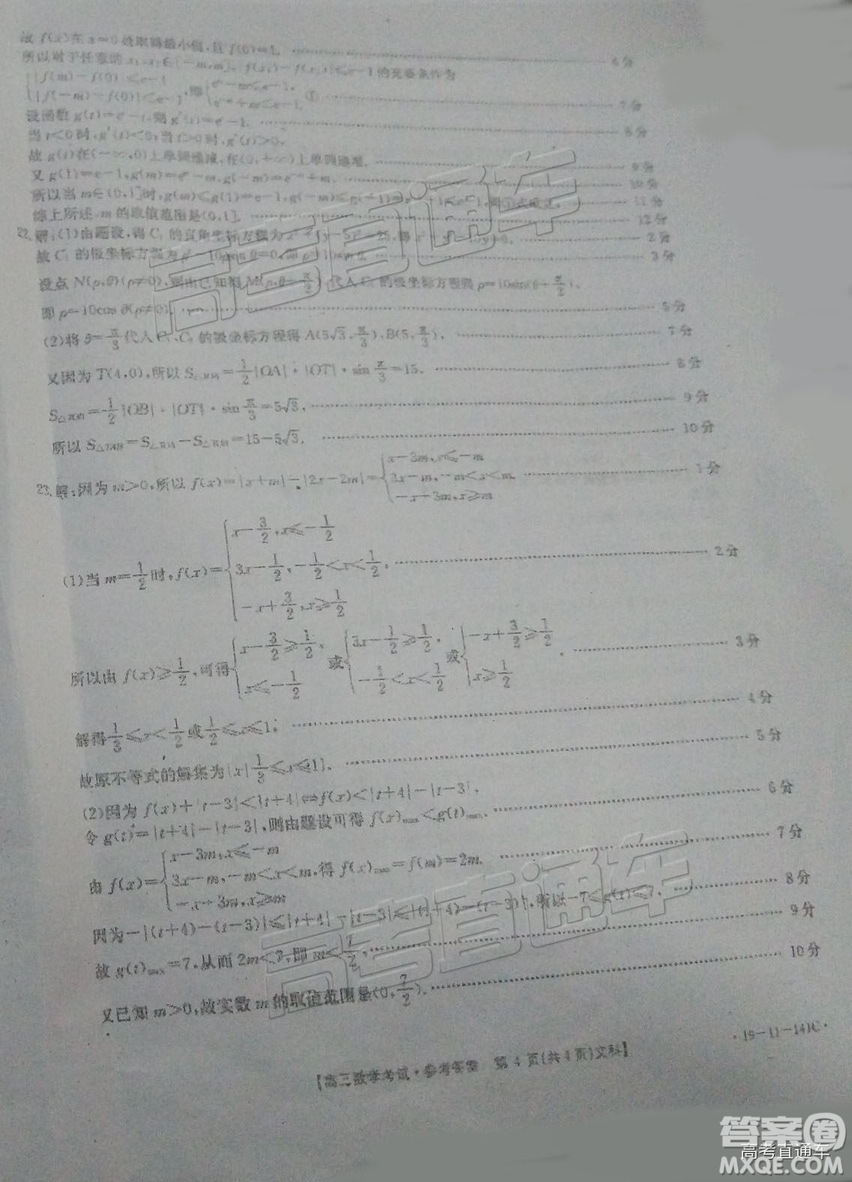 故 f(x)在 x=0 处取得最小值,且 f(0)=1. 6分
所以对于任意的 x₁,x₂∈[-m,m],|f(x₁)-f(x₂)|≤e-1 的充要条件为
{|f(m)-f(0)|≤e-1, |f(-m)-f(0)|≤e-1, 即{eᵐ-m≤e-1, e⁻ᵐ+m≤e-1. ① 7分
设函数 g(t)=eᵗ-t,则 g'(t)=eᵗ-1. 8分
当 t<0 时,g'(t)<0;当 t>0 时,g'(t)>0.
故 g(t)在(-∞,0)上单调递减,在(0,+∞)上单调递增. 9分
又 g(1)=e-1,g(m)=eᵐ-m,g(-m)=e⁻ᵐ+m, 10分
所以当 m∈(0,1]时,g(m)≤g(1)=e-1,g(-m)≤ 11分
综上所述,m 的取值范围是(0,1]. 12分
22.解:(1)由题设,得 C₁ 的直角坐标方程为 2分
故 C₁ 的极坐标方程为 3分
设点 N(ρ,θ)(ρ≠0),则由已知得 M(ρ,θ+π/2),代入 C₁ 的极坐标方程得 ρ=10sin(θ+π/2),
即 ρ=10cos θ(ρ≠0). 5分
(2)将 θ=π/3 代入 C₁,C₂ 的极坐标方程得 A(5√3,π/3),B(5,π/3). 7分
又因为 T(4,0),所以 S△TOA=1/2|OA|·|OT|·sin π/3=15, 8分
S△TOB=1/2|OB|·|OT|·sin π/3=5√3, 9分
所以 S△TAB=S△TOA-S△TOB=15-5√3. 10分
23.解:因为 m>0,所以 f(x)=|x+m|-|2x-2m|={x-3m,x≤-m 3x-m,-m<x<m, -x+3m,x≥m 1分
(1)当 m=1/2时,f(x)={x-3/2,x≤-1/2 3x-1/2,-1/2<x<1/2, -x+3/2,x≥1/2 2分
所以由 f(x)≥1/2,可得{x-3/2≥1/2, x≤-1/2 或{3x-1/2≥1/2, -1/2<x<1/2 或{-x+3/2≥1/2 x≥1/2 . 3分
解得1/3≤x<1/2或1/2≤x≤1; 4分
故原不等式的解集为{x|1/3≤x≤1}. 5分
(2)因为 f(x)+|t-3|<|t+4|⇔f(x)<|t+4|-|t-3|, 6分
令 g(t)=|t+4|-|t-3|,则由题设可得 f(x)max<g(t)max.
由 f(x)={x-3m,x≤-m 3x-m,-m<x<m, -x+3m,x≥m 得 f(x)max=f(m)=2m. 7分
因为-|(t+4)-(t-3)|≤|t+4|-|t-3|≤|(t+4)-(t-3)|,所以-7≤g(t)≤7. 8分
故 g(t)max=7,从而 2m<7,即 m<7/2, 9分
又已知 m>0,故实数 m 的取值范围是(0,7/2). 10分
【高三数学考试·参考答案 第4页(共4页)文科】
·19-11-141C·
高考直通车
答案圈
高考直通车
MXQE.COM